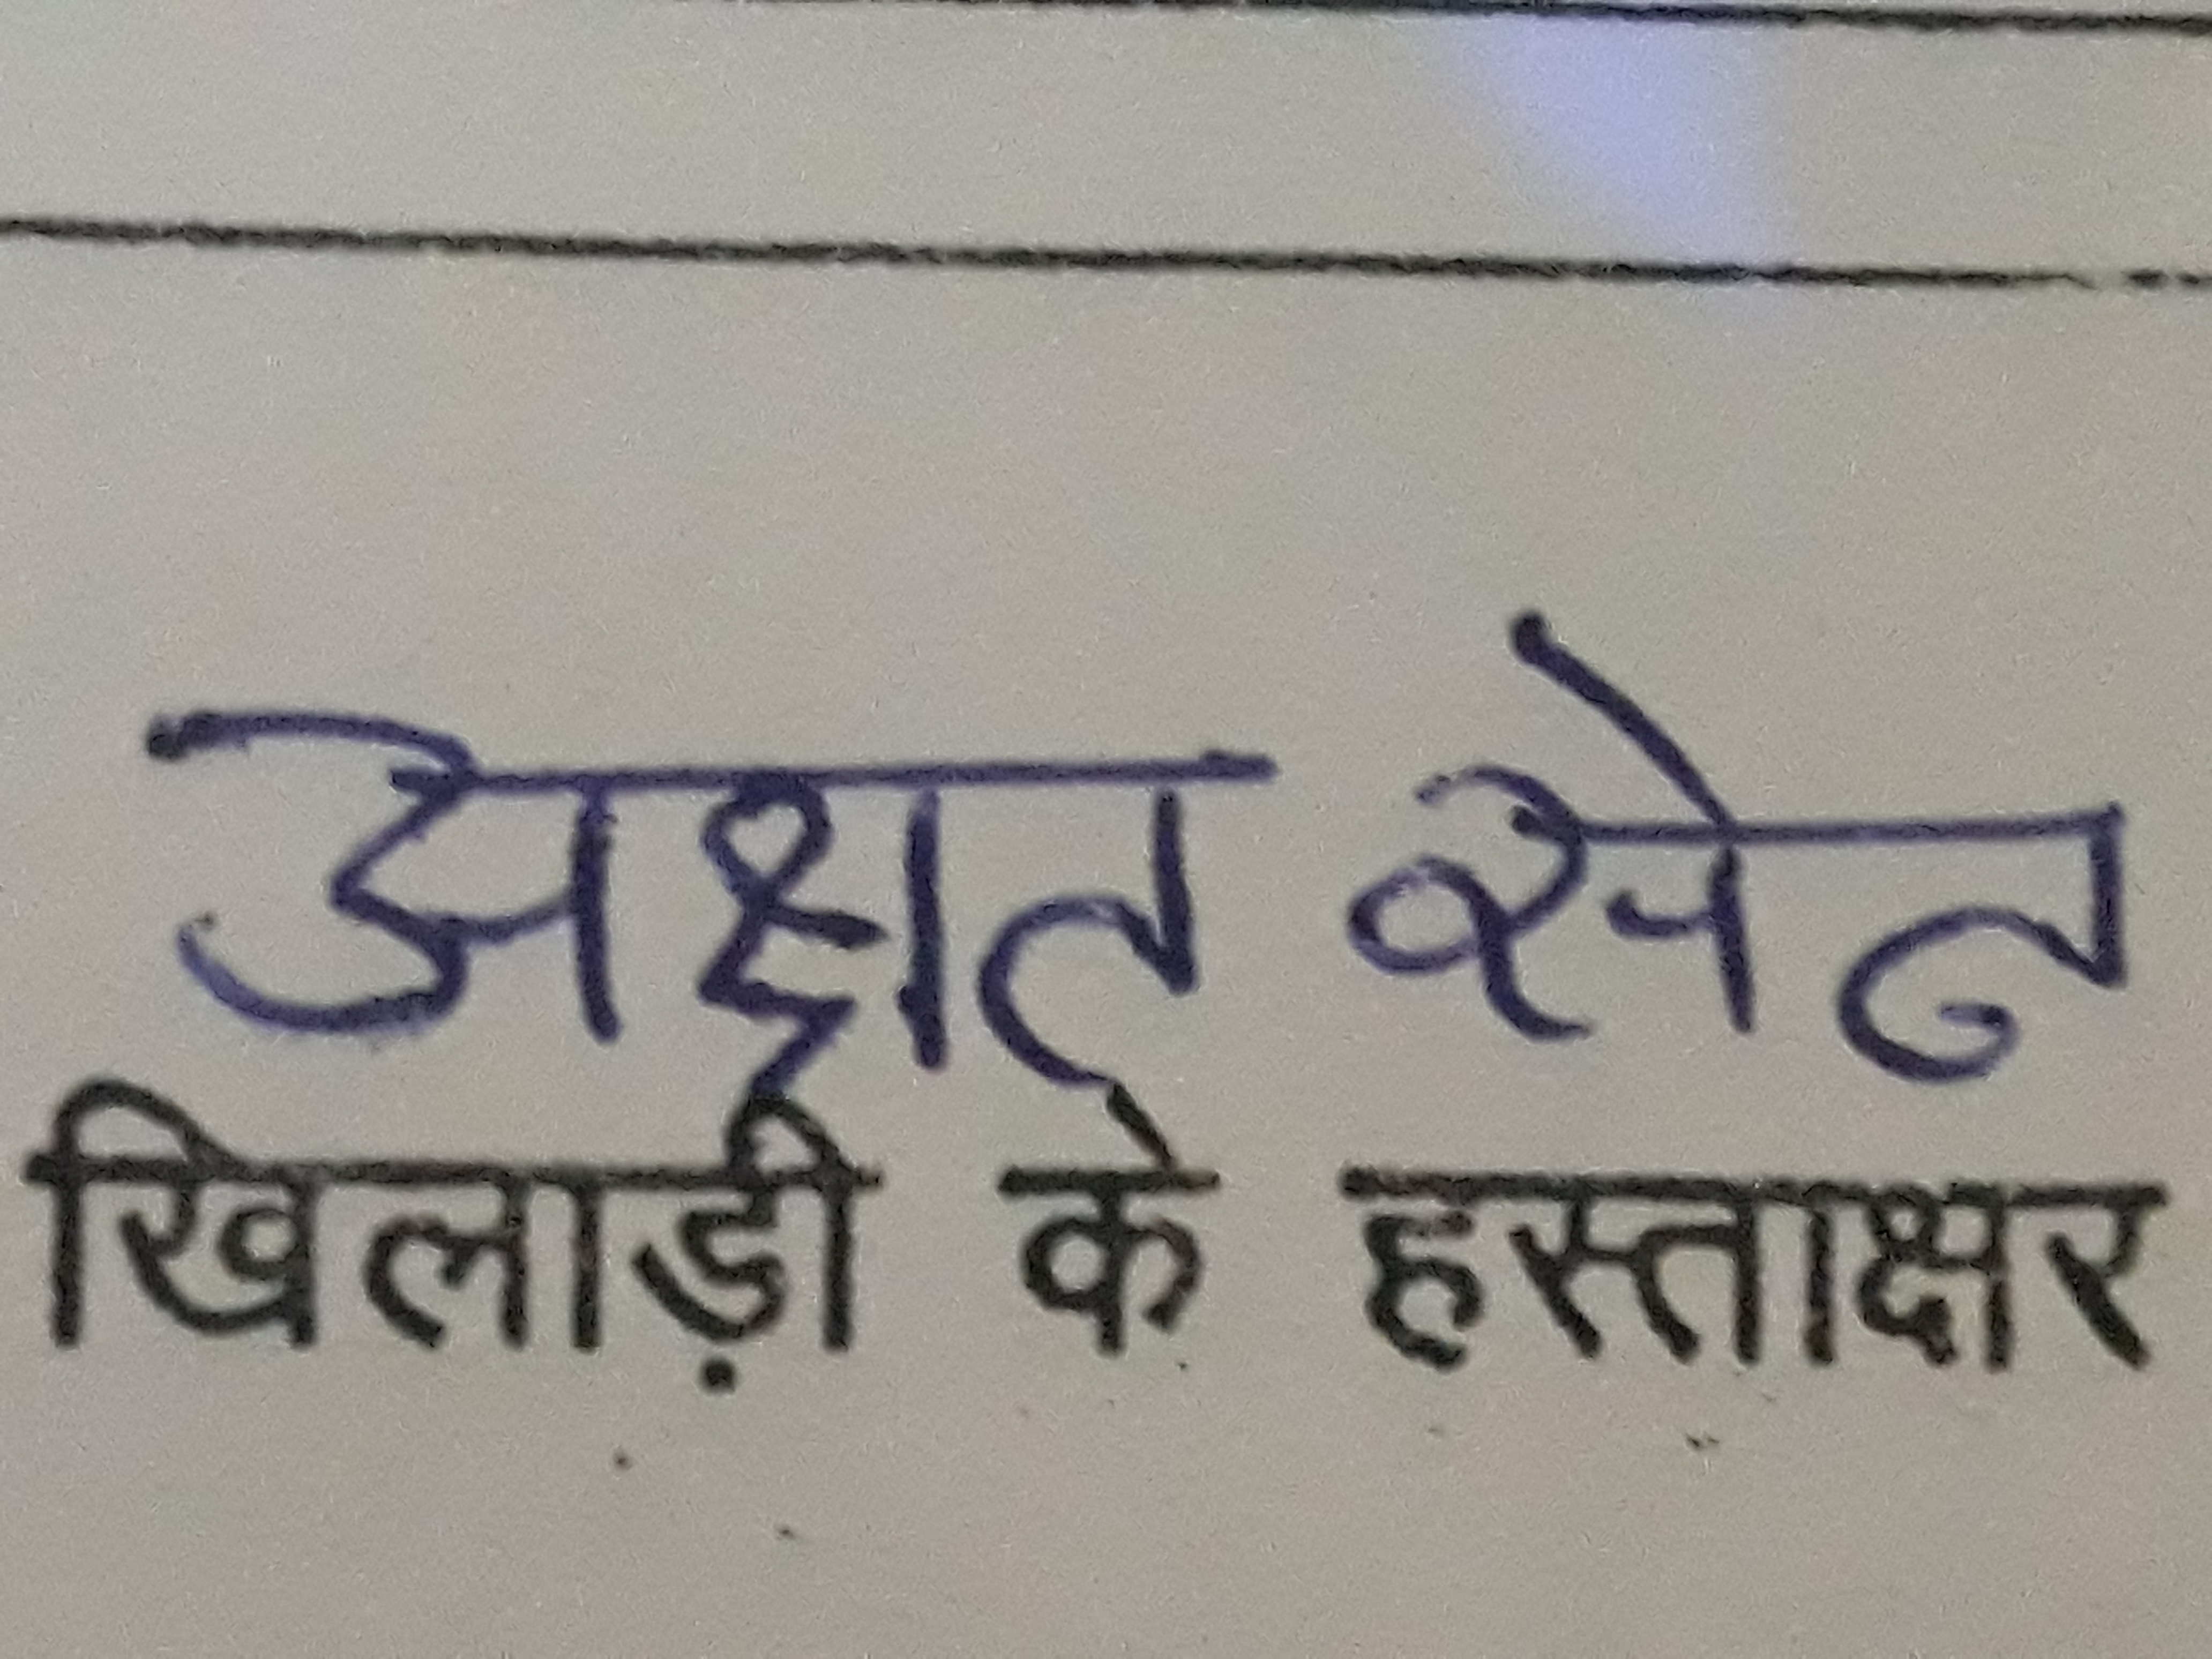 अक्षत सेन
खिलाड़ी के हस्ताक्षर